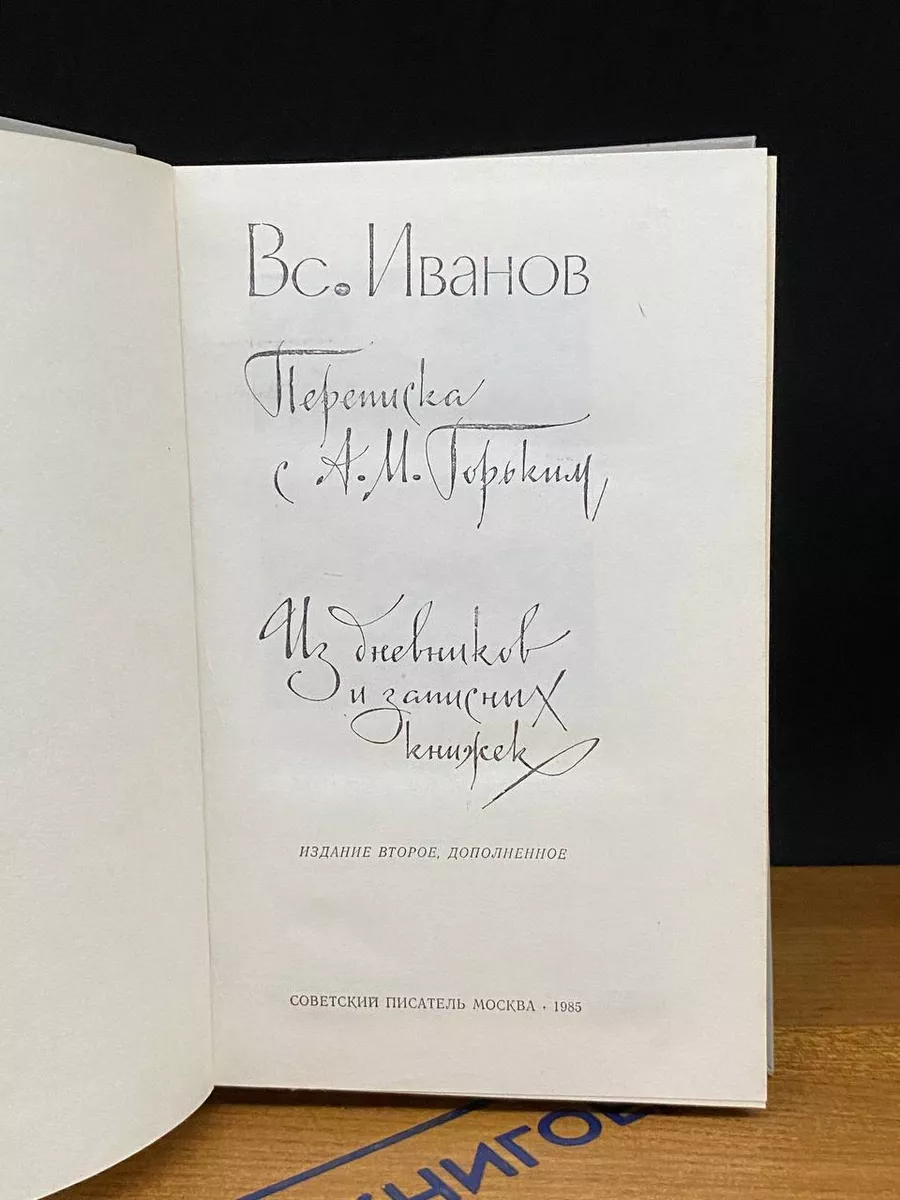 Вс. Иванов
Переписка
с А. М. Горьким
Из дневников
и записных
книжек
ИЗДАНИЕ ВТОРОЕ, ДОПОЛНЕННОЕ
СОВЕТСКИЙ ПИСАТЕЛЬ МОСКВА · 1985